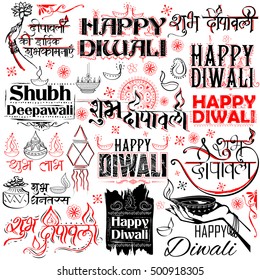 दीपावली
की हार्दिक
शुभकामनाएं
HAPPY
DIWALI
शुभ दीपावली
Shubh
Deepawali
शुभ
दीपावली
HAPPY
DIWALI
HAPPY
DIWALI
शुभ लाभ
HAPPY
DIWALI
शुभ
दीपावली
शुभ
धनतेरस
शुभ
दीपावली
Happy
Diwali
HAPPY
Diwali
shutterstock.com · 500918305